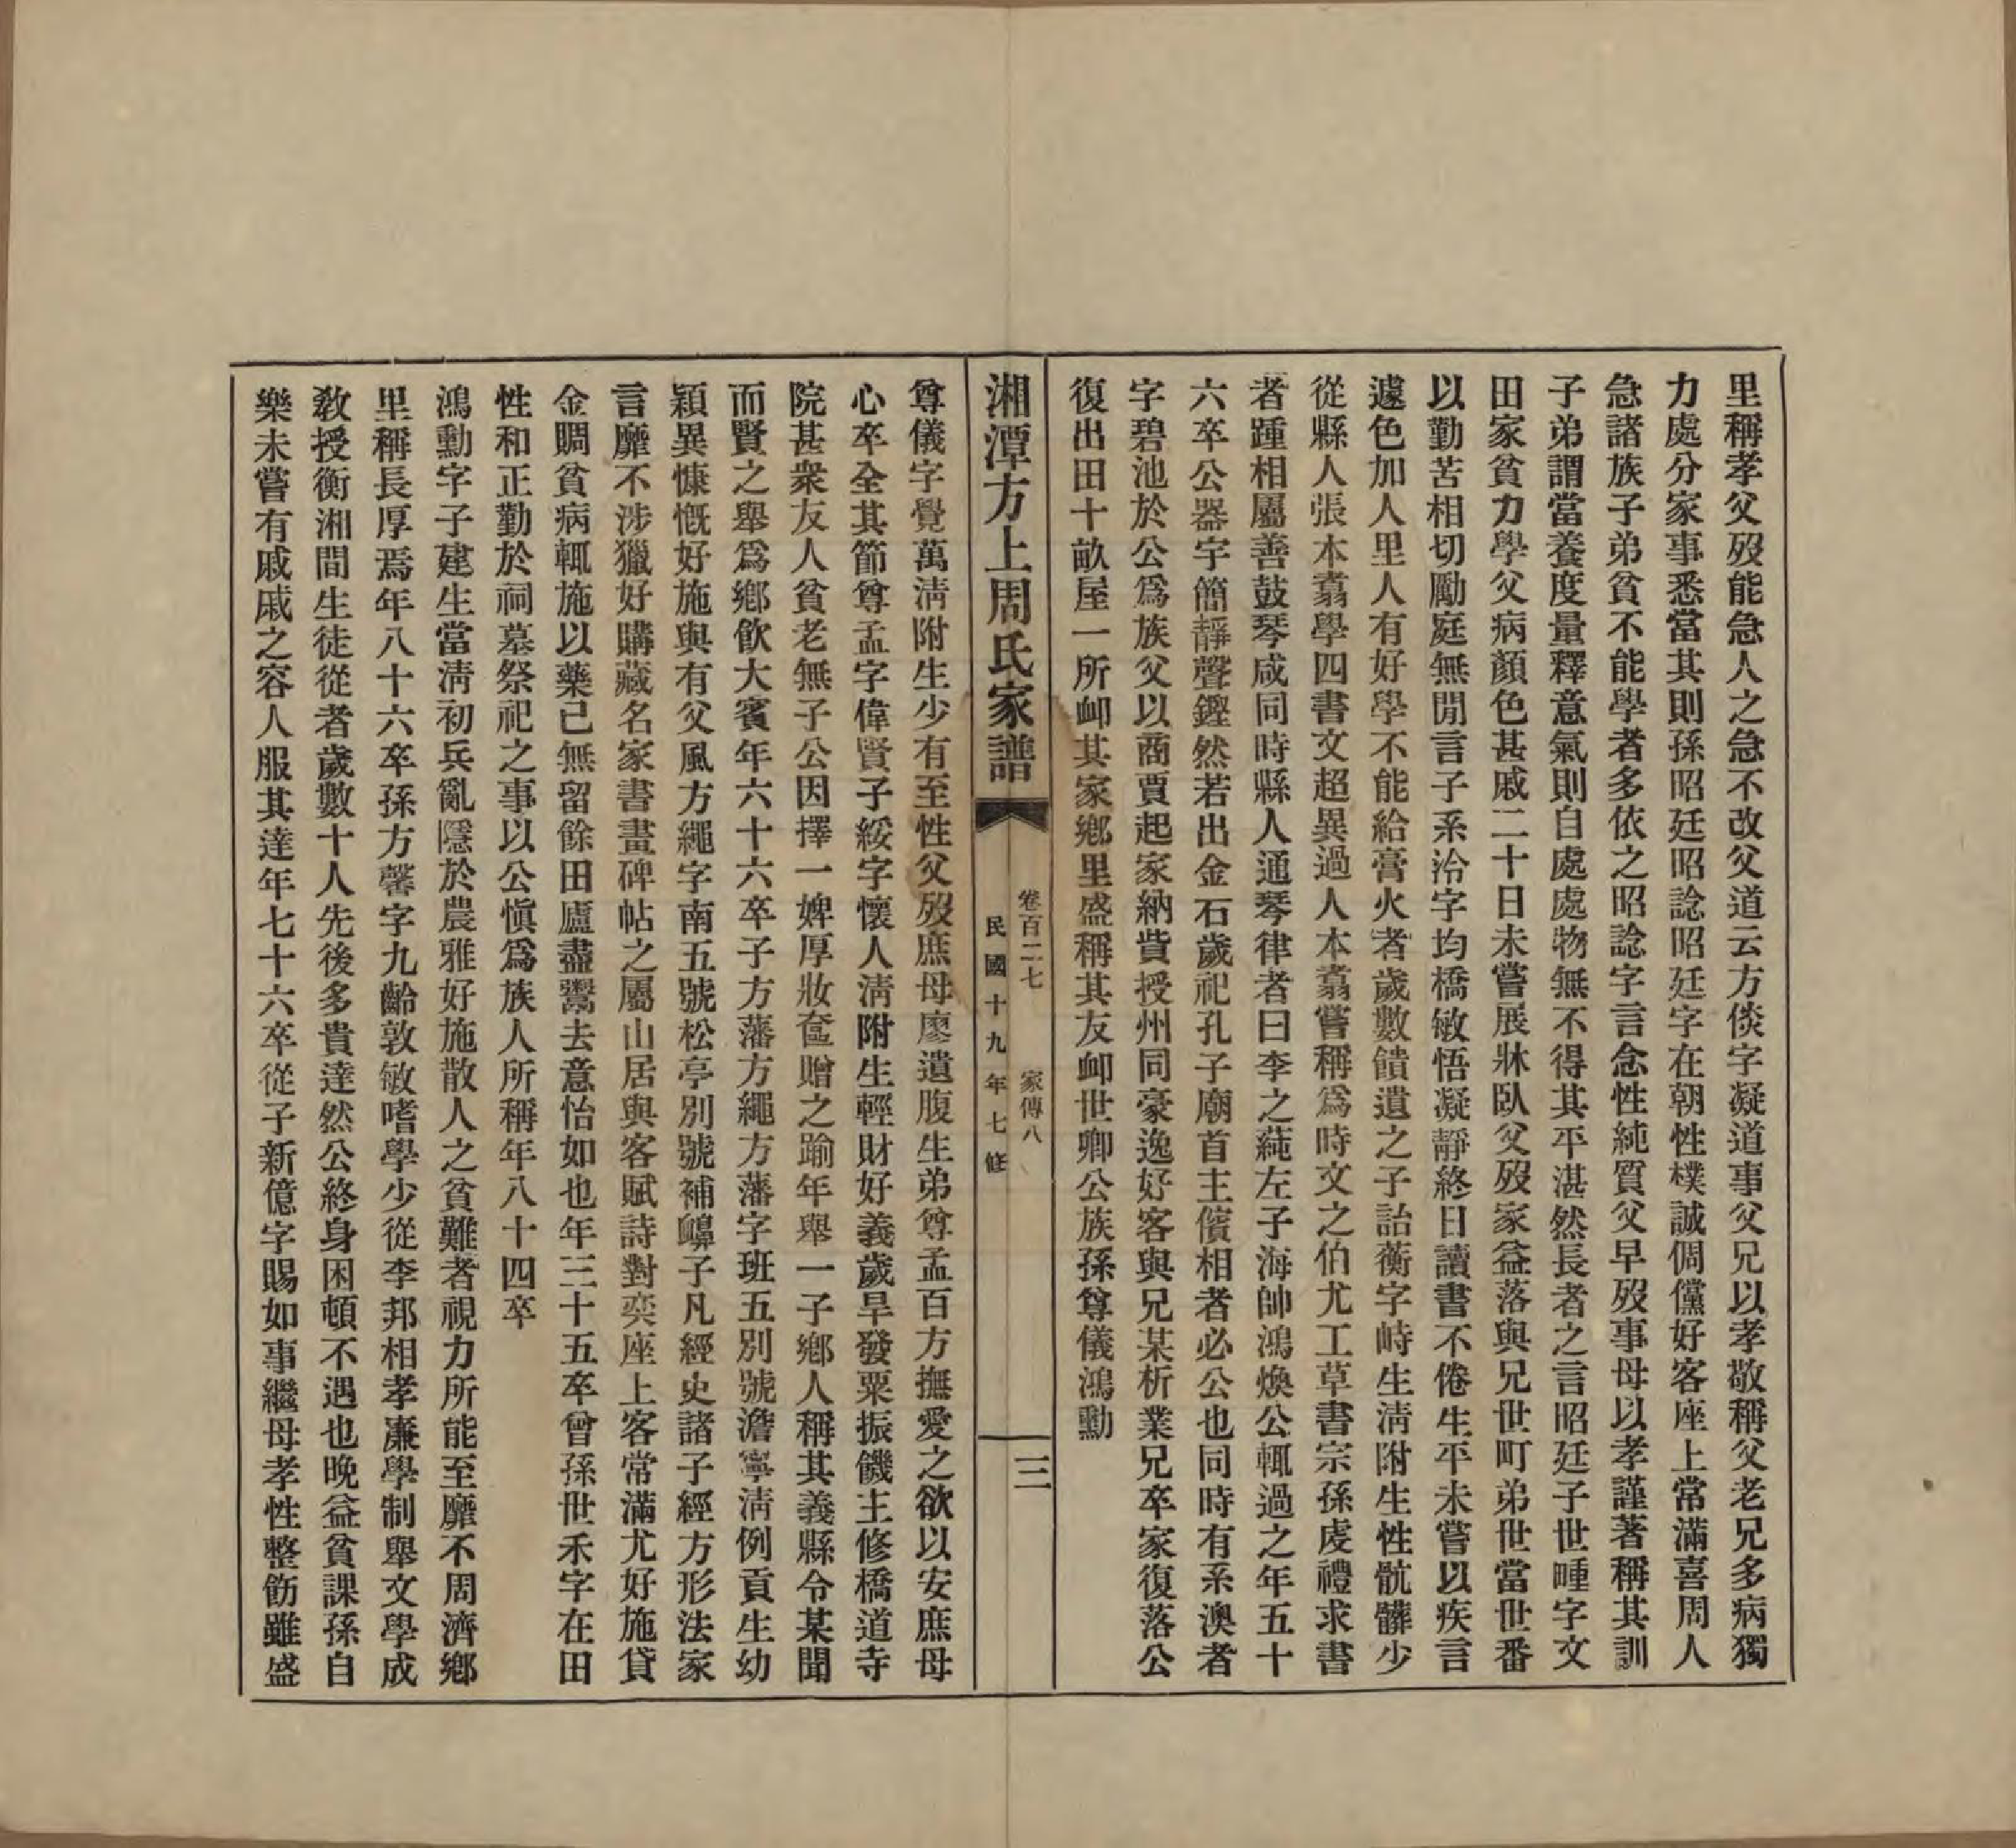 里稱孝父歿能急人之急不改父道云方倓字凝道事父兄以孝敬稱父老兄多病獨
力處分家事悉當其則孫昭廷昭諗昭廷字在朝性樸誠倜儻好客座上常滿喜周人
急諸族子弟貧不能學者多依之昭諗字言念性純質父早歿事母以孝謹著稱其訓
子弟謂當養度量釋意氣則自處處物無不得其平湛然長者之言昭廷子世畽字文
田家貧力學父病顏色甚戚二十日未嘗展牀臥父歿家益落與兄世町弟世當世番
以勤苦相切勵庭無閒言子系洽字均橋敏悟凝靜終日讀書不倦生平未嘗以疾言
遽色加人里人有好學不能給膏火者歲數饋遺之子詒蘅字峙生淸附生性骯髒少
從縣人張本翥學四書文超異過人本翥嘗稱爲時文之伯尤工草書宗孫虔禮求書
者踵相屬善鼓琴咸同時縣人通琴律者曰李之蒓左子海帥鴻煥公輒過之年五十
六卒公器宇簡靜聲鏗然若出金石歲祀孔子廟首主儐相者必公也同時有系澳者
字碧池於公爲族父以商賈起家納貲授州同豪逸好客與兄某析業兄卒家復落公
復出田十畝屋一所卹其家鄕里盛稱其友卹世卿公族孫尊儀鴻勳
湘潭方上周氏家譜
卷百二七　家傳八
民國十九年七修
三
尊儀字覺萬淸附生少有至性父歿庶母廖遺腹生弟尊孟百方撫愛之欲以安庶母
心卒全其節尊孟字偉賢子綏字懷人淸附生輕財好義歲旱發粟振饑主修橋道寺
院甚衆友人貧老無子公因擇一婢厚妝奩贈之踰年舉一子鄕人稱其義縣令某聞
而賢之舉爲鄕飮大賓年六十六卒子方藩方繩方藩字班五別號澹寧淸例貢生幼
穎異慷慨好施與有父風方繩字南五號松亭別號補鱓子凡經史諸子經方形法家
言靡不涉獵好購藏名家書畫碑帖之屬山居與客賦詩對奕座上客常滿尤好施貸
金賙貧病輒施以藥己無留餘田廬盡鬻去意怡如也年三十五卒曾孫世禾字在田
性和正勤於祠墓祭祀之事以公愼爲族人所稱年八十四卒
鴻勳字子建生當淸初兵亂隱於農雅好施散人之貧難者視力所能至靡不周濟鄕
里稱長厚焉年八十六卒孫方馨字九齡敦敏嗜學少從李邦相孝廉學制舉文學成
敎授衡湘間生徒從者歲數十人先後多貴達然公終身困頓不遇也晚益貧課孫自
樂未嘗有戚戚之容人服其達年七十六卒從子新億字賜如事繼母孝性整飭雖盛